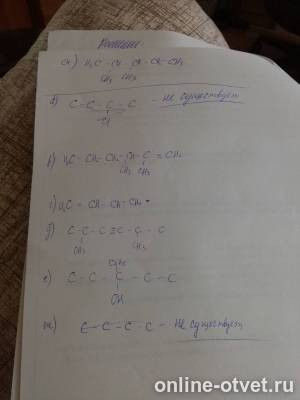 Решение
а) H₃C - CH - CH - CH - CH₃
CH₃ CH₃
б) C - C - C - C - не существует
Cl
в) H₃C - CH₂ - CH₂ - CH - C = CH₂
CH₃ CH₃
г) H₂C = CH - CH - CH₃
д) C - C - C ≡ C - C - C
CH₃ CH₃
е) C - C - C - C - C
OH
ж) C - C - C - C - не существует
online-otvet.ru